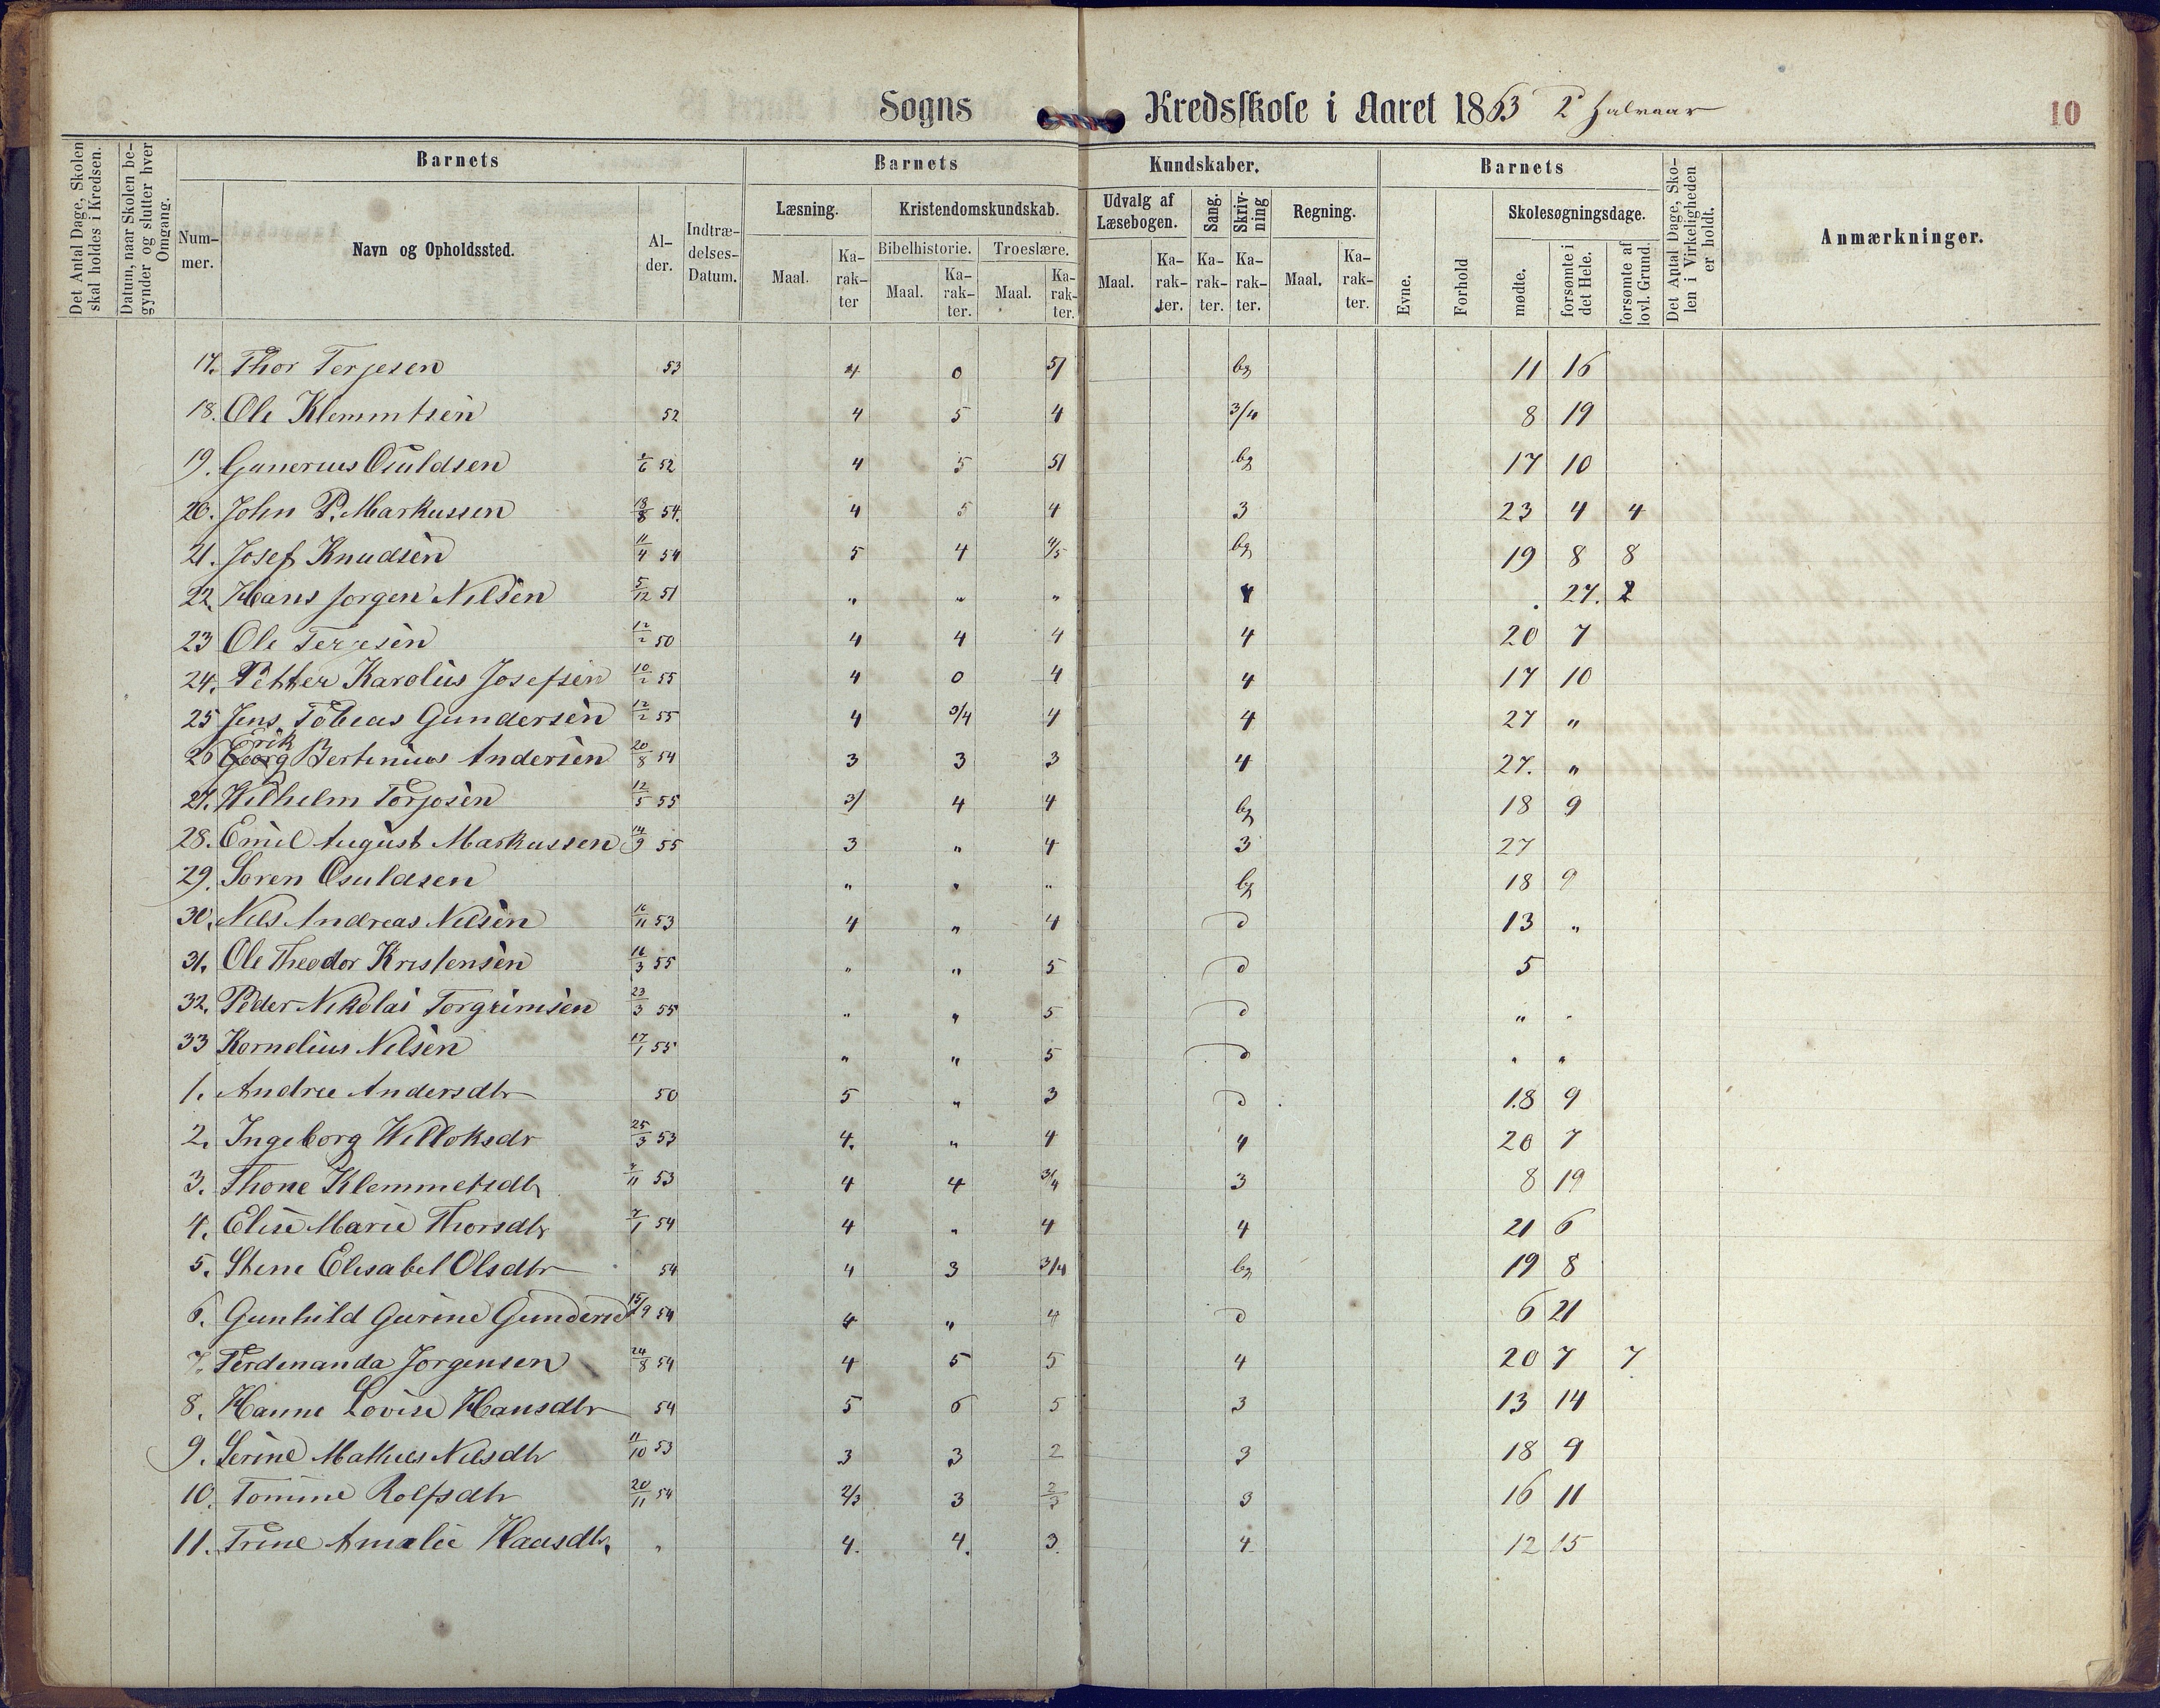 Sogns Kredsskole i Aaret 1863 2 halvaar
10
Det Antal Dage, Skolen skal holdes i Kredsen.
Datum, naar Skolen begynder og slutter hver Omgang.
Barnets
Barnets
Kundskaber.
Barnets
Det Antal Dage, Skolen i Virkeligheden er holdt.
Anmærkninger.
Nummer.
Navn og Opholdssted.
Alder.
Indtrædelses-Datum.
Læsning.
Kristendomskundskab.
Udvalg af Læsebogen.
Sang.
Skrivning
Regning.
Evne.
Forhold
Skolesøgningsdage.
Bibelhistorie.
Troeslære.
Maal.
Karakter
Maal.
Karakter.
Maal.
Karakter.
Maal.
Karakter.
Karakter.
Karakter.
Maal.
Karakter.
mødte.
forsømte i det Hele.
forsømte af lovl. Grund.
17. Thor Terjesen 53 4 0 5/ bg 11 16
18. Ole Klemmtsen 52 4 5 4 3/4 8 19
19. Gunerius Osuldsen 52 4 5 5/ bg 17 10
20. John P. Markussen 13/8 54. 4 5 4 3 23 4 4
21. Josef Knudsen 11/4 54 5 4 4/5 bg 19 8 8
22. Hans Jorgen Nilsen 5/12 51 " " " 4 . 27. 2
23 Ole Terjesen 12/2 50 4 4 4 4 20 7
24. Petter Karolius Josefsen 10/2 55 4 0 4 4 17 10
25 Jens Tobias Gundersen 12/2 55 4 3/4 4 4 27 "
26 Georg Erik Bertinius Andersen 20/8 54 3 3 3 4 27. "
27. Wilhelm Torjosen 12/5 55 3/ 4 4 bg 18 9
28. Emil August Markussen 14/9 55 3 " 4 3 27
29. Soren Osuldsen " " " bg 18 9
30. Nils Andreas Nilsen 16/11 53 4 " 4 d 13 "
31. Ole Theodor Kristensen 16/3 55 " " 5 d 5
32. Peder Nikolai Torgrimsen 23/3 55 " " 5 d " "
33 Kornelius Nilsen 17/1 55 " " 5 d " "
1. Andree Andersdtr 50 5 " 3 d 18 9
2. Ingeborg Willoksdr 25/3 53 4. " 4 4 20 7
3. Thone Klemmetsdtr 7/11 53 4 4 3/4 3 8 19
4. Elise Marie Thorsdtr 7/1 54 4 " 4 4 21 6
5. Stene Elisabel Olsdtr 54 4 3 3/4 bg 19 8
6. Gunhild Gurine Gundersd 15/9 54 4 " 4 d 6 21
7. Ferdinanda Jorgensen 24/8 54 4 5 5 4 20 7 7
8. Hanne Lovise Hansdtr 54 5 6 5 3 13 14
9. Serine Mathies Nilsdtr 11/10 53 3 3 2 3 18 9
10. Tomine Rolfsdtr 20/11 54 2/3 3 2/3 3 16 11
11. Trine Amalie Haasdtr. " 4. 4. 3. 4 12 15